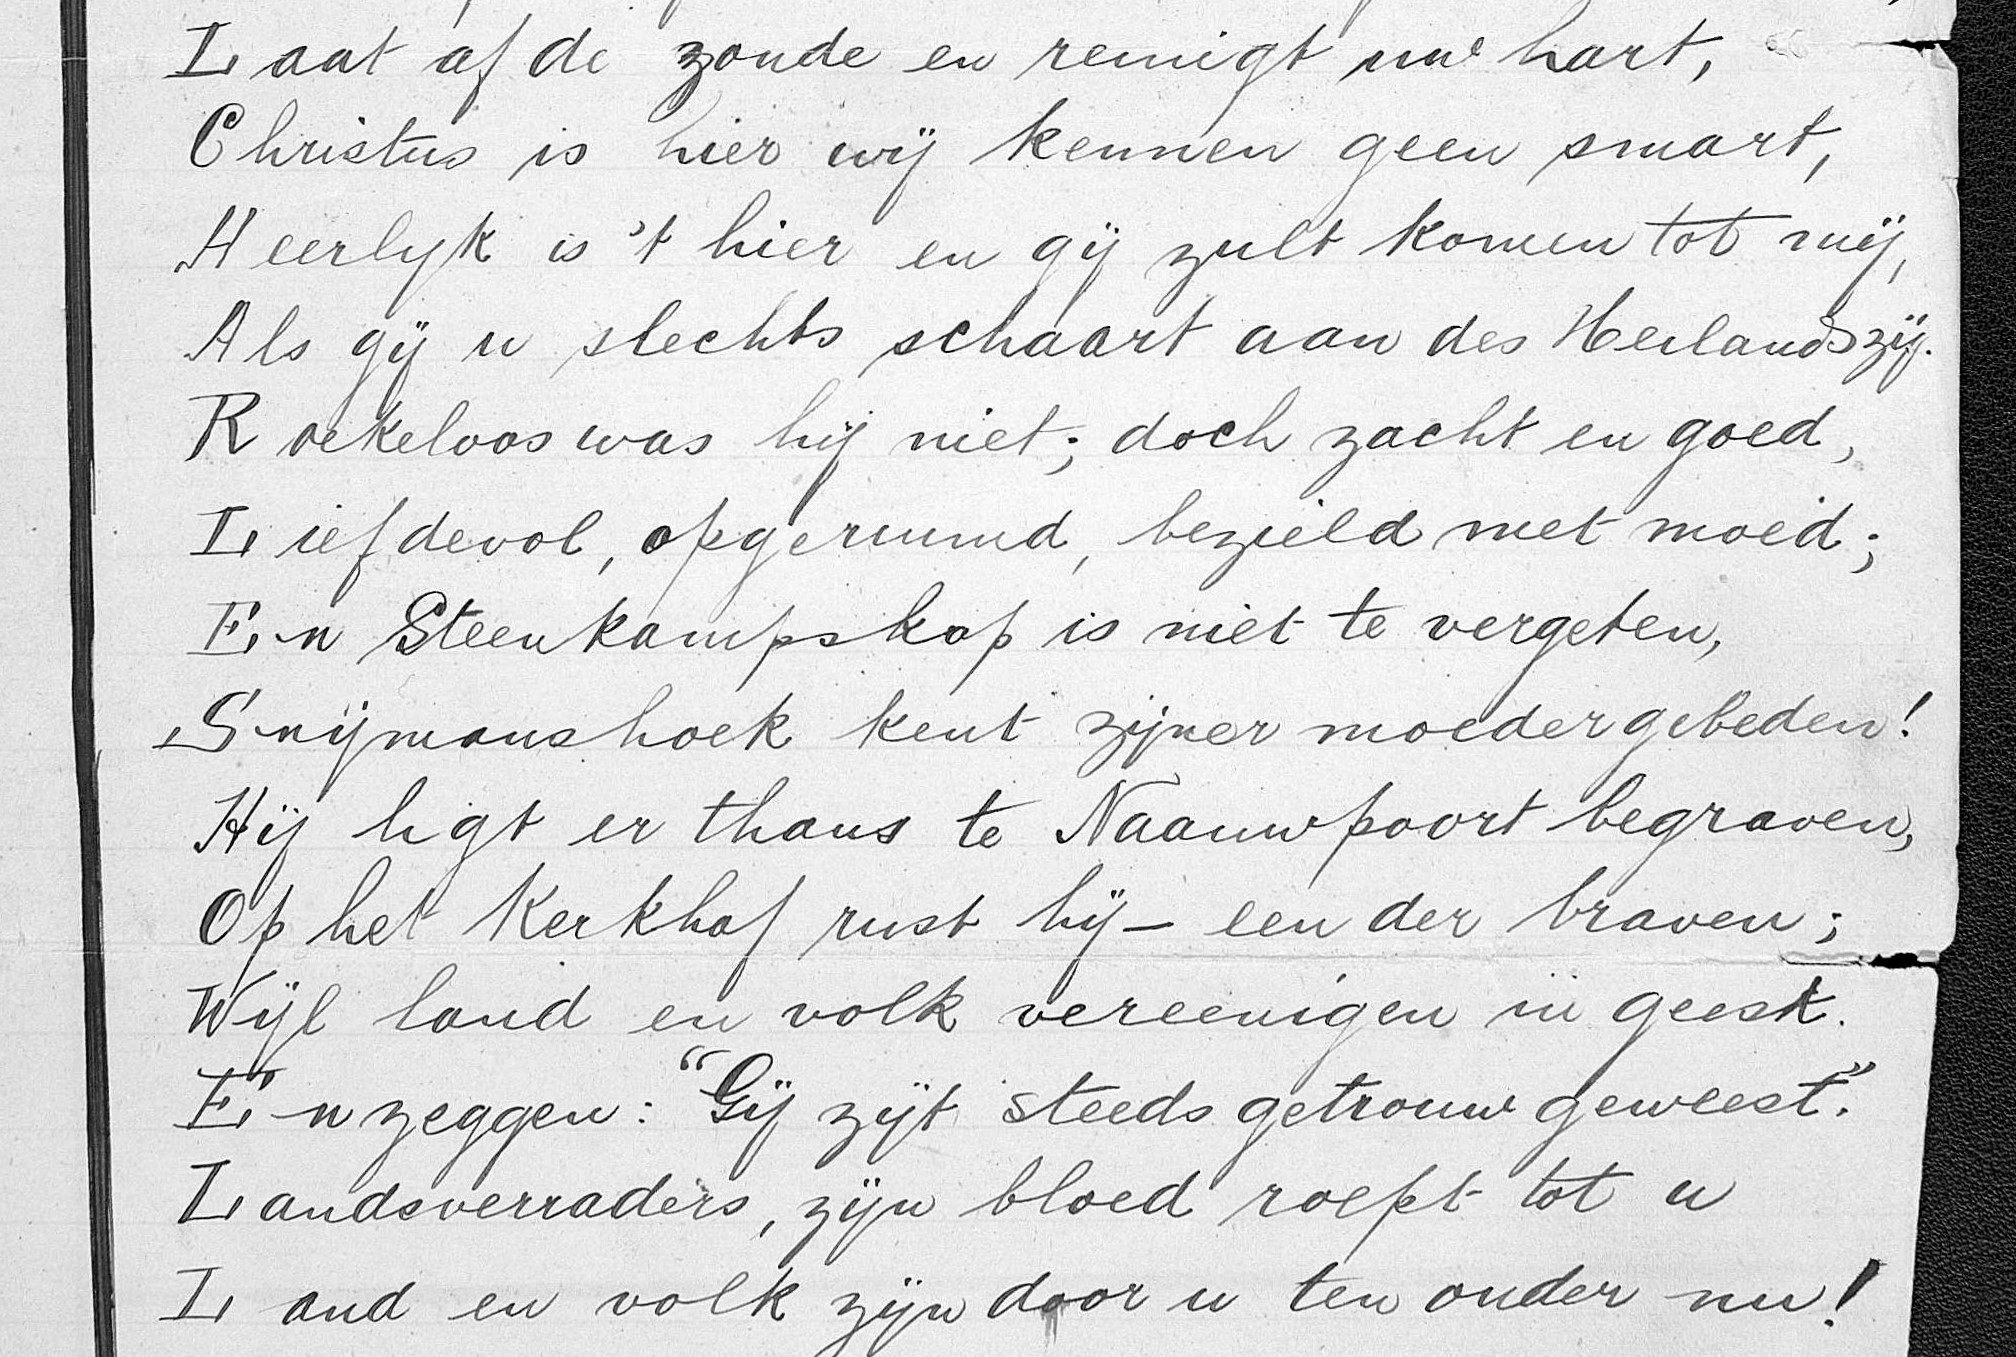 Laat af de zonde en reinigt uw hart,
Christus is hier wij kennen geen smart,
Heerlyk is 't hier en gij zult komen tot mij,
Als gij u slechts schaart aan des Heilands zij.
Roekeloos was hij niet; doch zacht en goed,
Liefdevol, opgeruimd, bezield met moed;
En Steenkampskop is niet te vergeten,
Snijmanshoek kent zijner moeder gebeden!
Hij ligt er thans te Naauwpoort begraven,
Op het Kerkhof rust hij – een der braven;
Wijl land en volk vereenigen in geest.
En zeggen: "Gij zijt steeds getrouw geweest."
Landsverraders, zijn bloed roept tot u
Land en volk zijn door u ten onder nu!